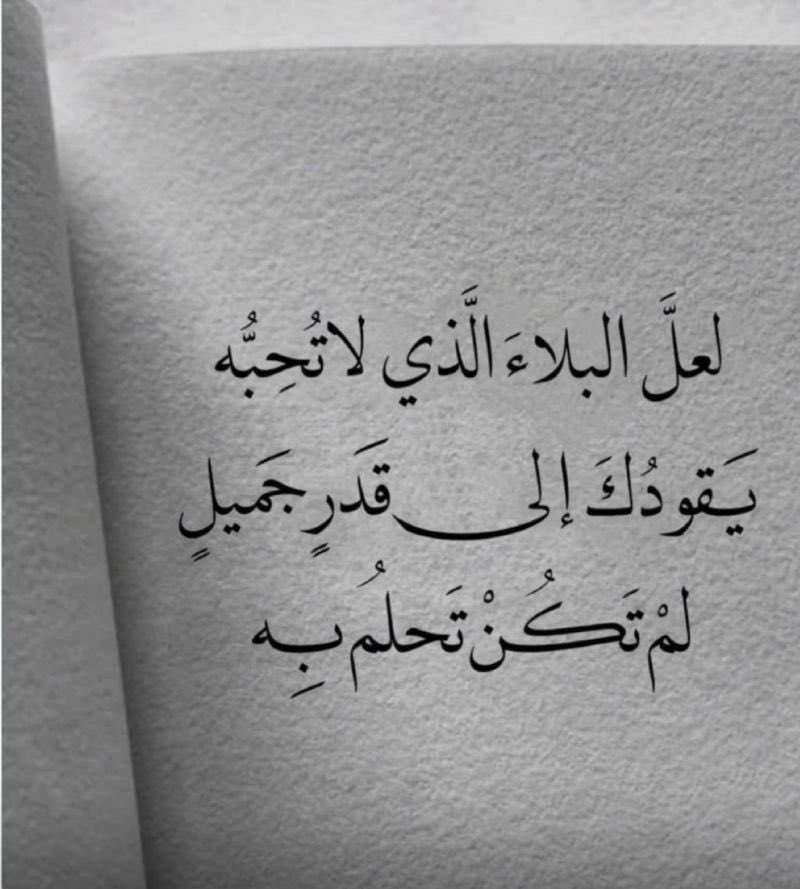 لعلَّ البلاءَ الَّذي لا تُحِبُّه
يَقودُكَ إلى قَدَرٍ جَميلٍ
لمْ تَكُنْ تَحلُم بِه